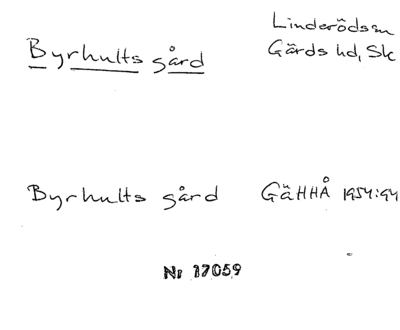 Linderödssn
Byrhults gård
Gärds hd, Sk
Byrhults gård GäHHÅ 1954:94
Nr 17059